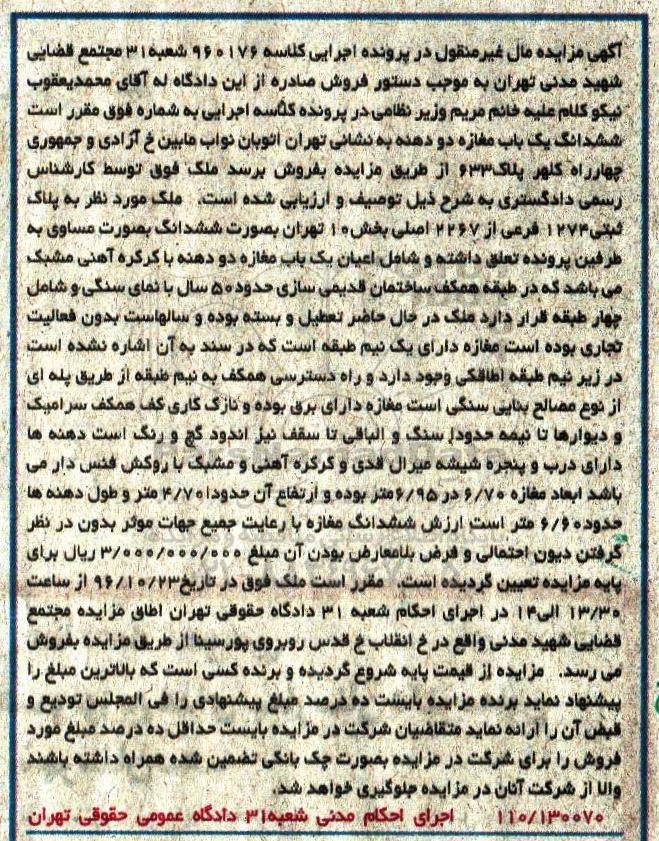 آگهی مزایده مال غیرمنقول در پرونده اجرایی کلاسه ۹۶۰۱۷۶ شعبه ۳۱ مجتمع قضایی
شهید مدنی تهران به موجب دستور فروش صادره از این دادگاه له آقای محمدیعقوب
نیکو کلام علیه خانم مریم وزیر نظامی در پرونده کلاسه اجرایی به شماره فوق مقرر است
ششدانگ یک باب مغازه دو دهنه به نشانی تهران اتوبان نواب مابین خ آزادی و جمهوری
چهارراه کلهر پلاک ۶۳۳ از طریق مزایده بفروش برسد ملک فوق توسط کارشناس
رسمی دادگستری به شرح ذیل توصیف و ارزیابی شده است. ملک مورد نظر به پلاک
ثبتی ۱۲۷۴ فرعی از ۲۲۶۷ اصلی بخش ۱۰ تهران بصورت ششدانگ بصورت مساوی به
طرفین پرونده تعلق داشته و شامل اعیان یک باب مغازه دو دهنه با کرکره آهنی مشبک
می باشد که در طبقه همکف ساختمان قدیمی سازی حدود ۵۰ سال با نمای سنگی و شامل
چهار طبقه قرار دارد ملک در حال حاضر تعطیل و بسته بوده و سالهاست بدون فعالیت
تجاری بوده است مغازه دارای یک نیم طبقه است که در سند به آن اشاره نشده است
در زیر نیم طبقه اطاقکی وجود دارد و راه دسترسی همکف به نیم طبقه از طریق پله ای
از نوع مصالح بنایی سنگی است مغازه دارای برق بوده و نازک کاری کف همکف سرامیک
و دیوارها تا نیمه حدودا سنگ و الباقی تا سقف نیز اندود گچ و رنگ است دهنه ها
دارای درب و پنجره شیشه میرال قدی و کرکره آهنی و مشبک با روکش فنس دار می
باشد ابعاد مغازه ۶/۷۰ در ۶/۹۵ متر بوده و ارتفاع آن حدودا ۴/۷۰ متر و طول دهنه ها
حدود ۶/۶۰ متر است ارزش ششدانگ مغازه با رعایت جمیع جهات موثر بدون در نظر
گرفتن دیون احتمالی و فرض بلامعارض بودن آن مبلغ ۳/۰۰۰/۰۰۰/۰۰۰ ریال برای
پایه مزایده تعیین گردیده است. مقرر است ملک فوق در تاریخ ۹۶/۱۰/۲۳ از ساعت
۱۳/۳۰ الی ۱۴ در اجرای احکام شعبه ۳۱ دادگاه حقوقی تهران اطاق مزایده مجتمع
قضایی شهید مدنی واقع در خ انقلاب خ قدس روبروی پورسینا از طریق مزایده بفروش
می رسد. مزایده از قیمت پایه شروع گردیده و برنده کسی است که بالاترین مبلغ را
پیشنهاد نماید برنده مزایده بایست ده درصد مبلغ پیشنهادی را فی المجلس تودیع و
قبض آن را ارائه نماید متقاضیان شرکت در مزایده بایست حداقل ده درصد مبلغ مورد
فروش را برای شرکت در مزایده بصورت چک بانکی تضمین شده همراه داشته باشند
والا از شرکت آنان در مزایده جلوگیری خواهد شد.
۱۱۰/۱۳۰۰۷۰ اجرای احکام مدنی شعبه ۳۱ دادگاه عمومی حقوقی تهران